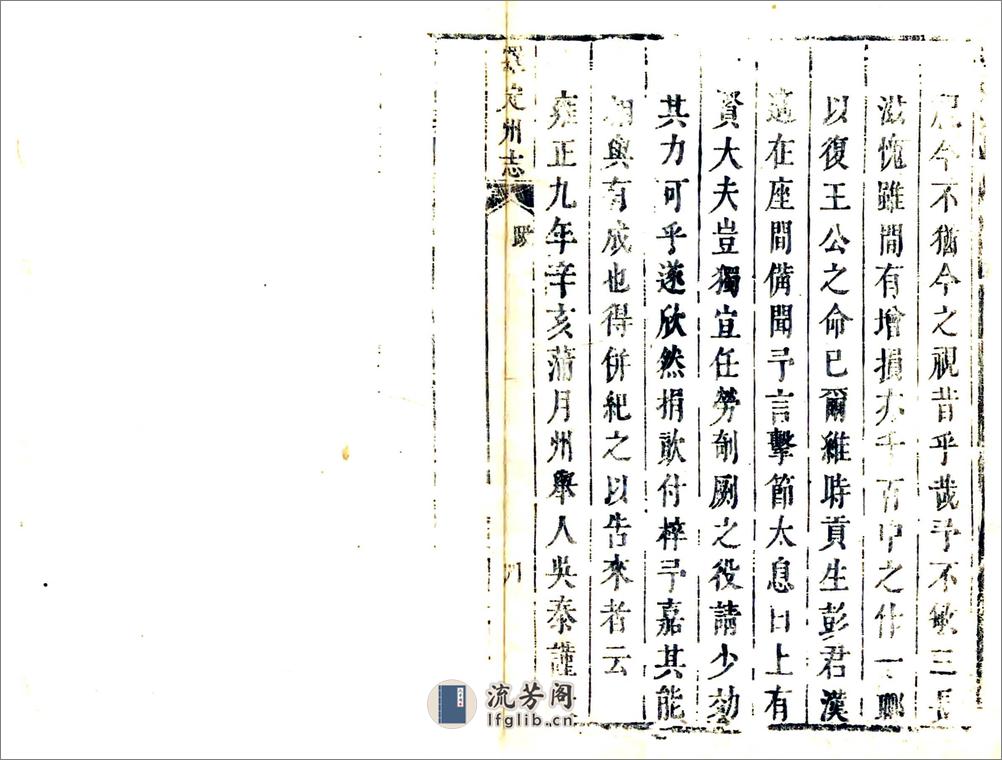 視今不猶今之視昔乎哉予不敏三長
滋愧雖間有增損亦千百中之什一聊
以復王公之命已爾維時貢生彭君漢
適在座間備聞予言擊節太息曰上有
賢大夫豈獨宜任勞剞劂之役請少効
其力可乎遂欣然捐歘付梓予嘉其能
相與有成也得併紀之以告來者云
雍正九年辛亥蒲月州舉人吳泰謹
定州志
流芳阁
lfglib.cn